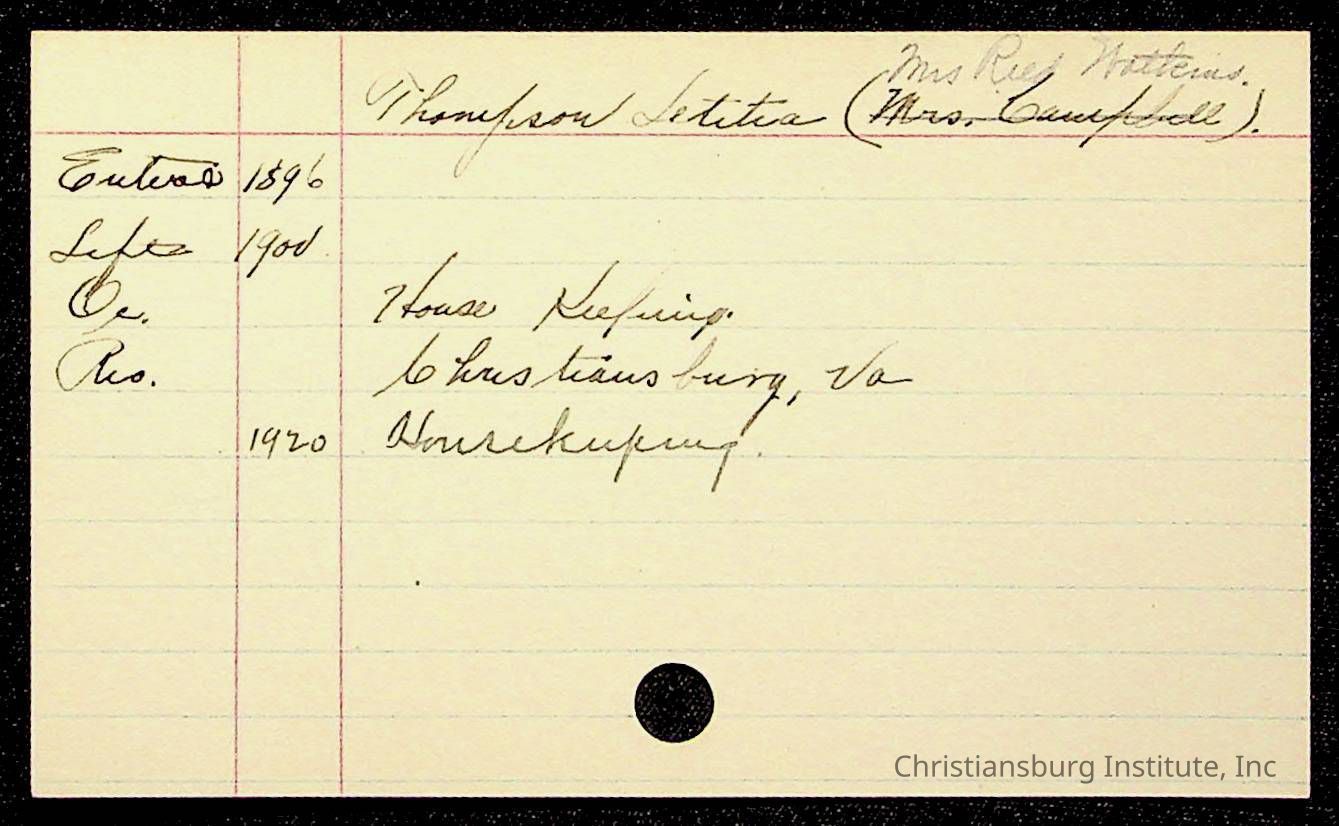 Mrs Reed Watkins.
Thompson Letitia (Mrs. Campbell).
Entered 1896
Left 1900
Oc. House Keeping.
Res. Christiansburg, Va
1920 Housekeeping.
Christiansburg Institute, Inc